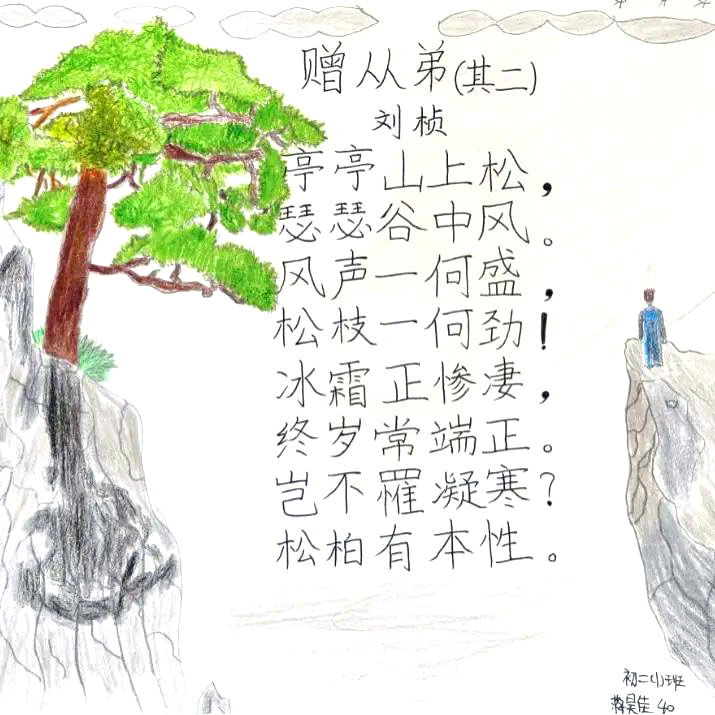 赠从弟(其二)
刘桢
亭亭山上松，
瑟瑟谷中风。
风声一何盛，
松枝一何劲！
冰霜正惨凄，
终岁常端正。
岂不罹凝寒？
松柏有本性。
初二(1)班
40